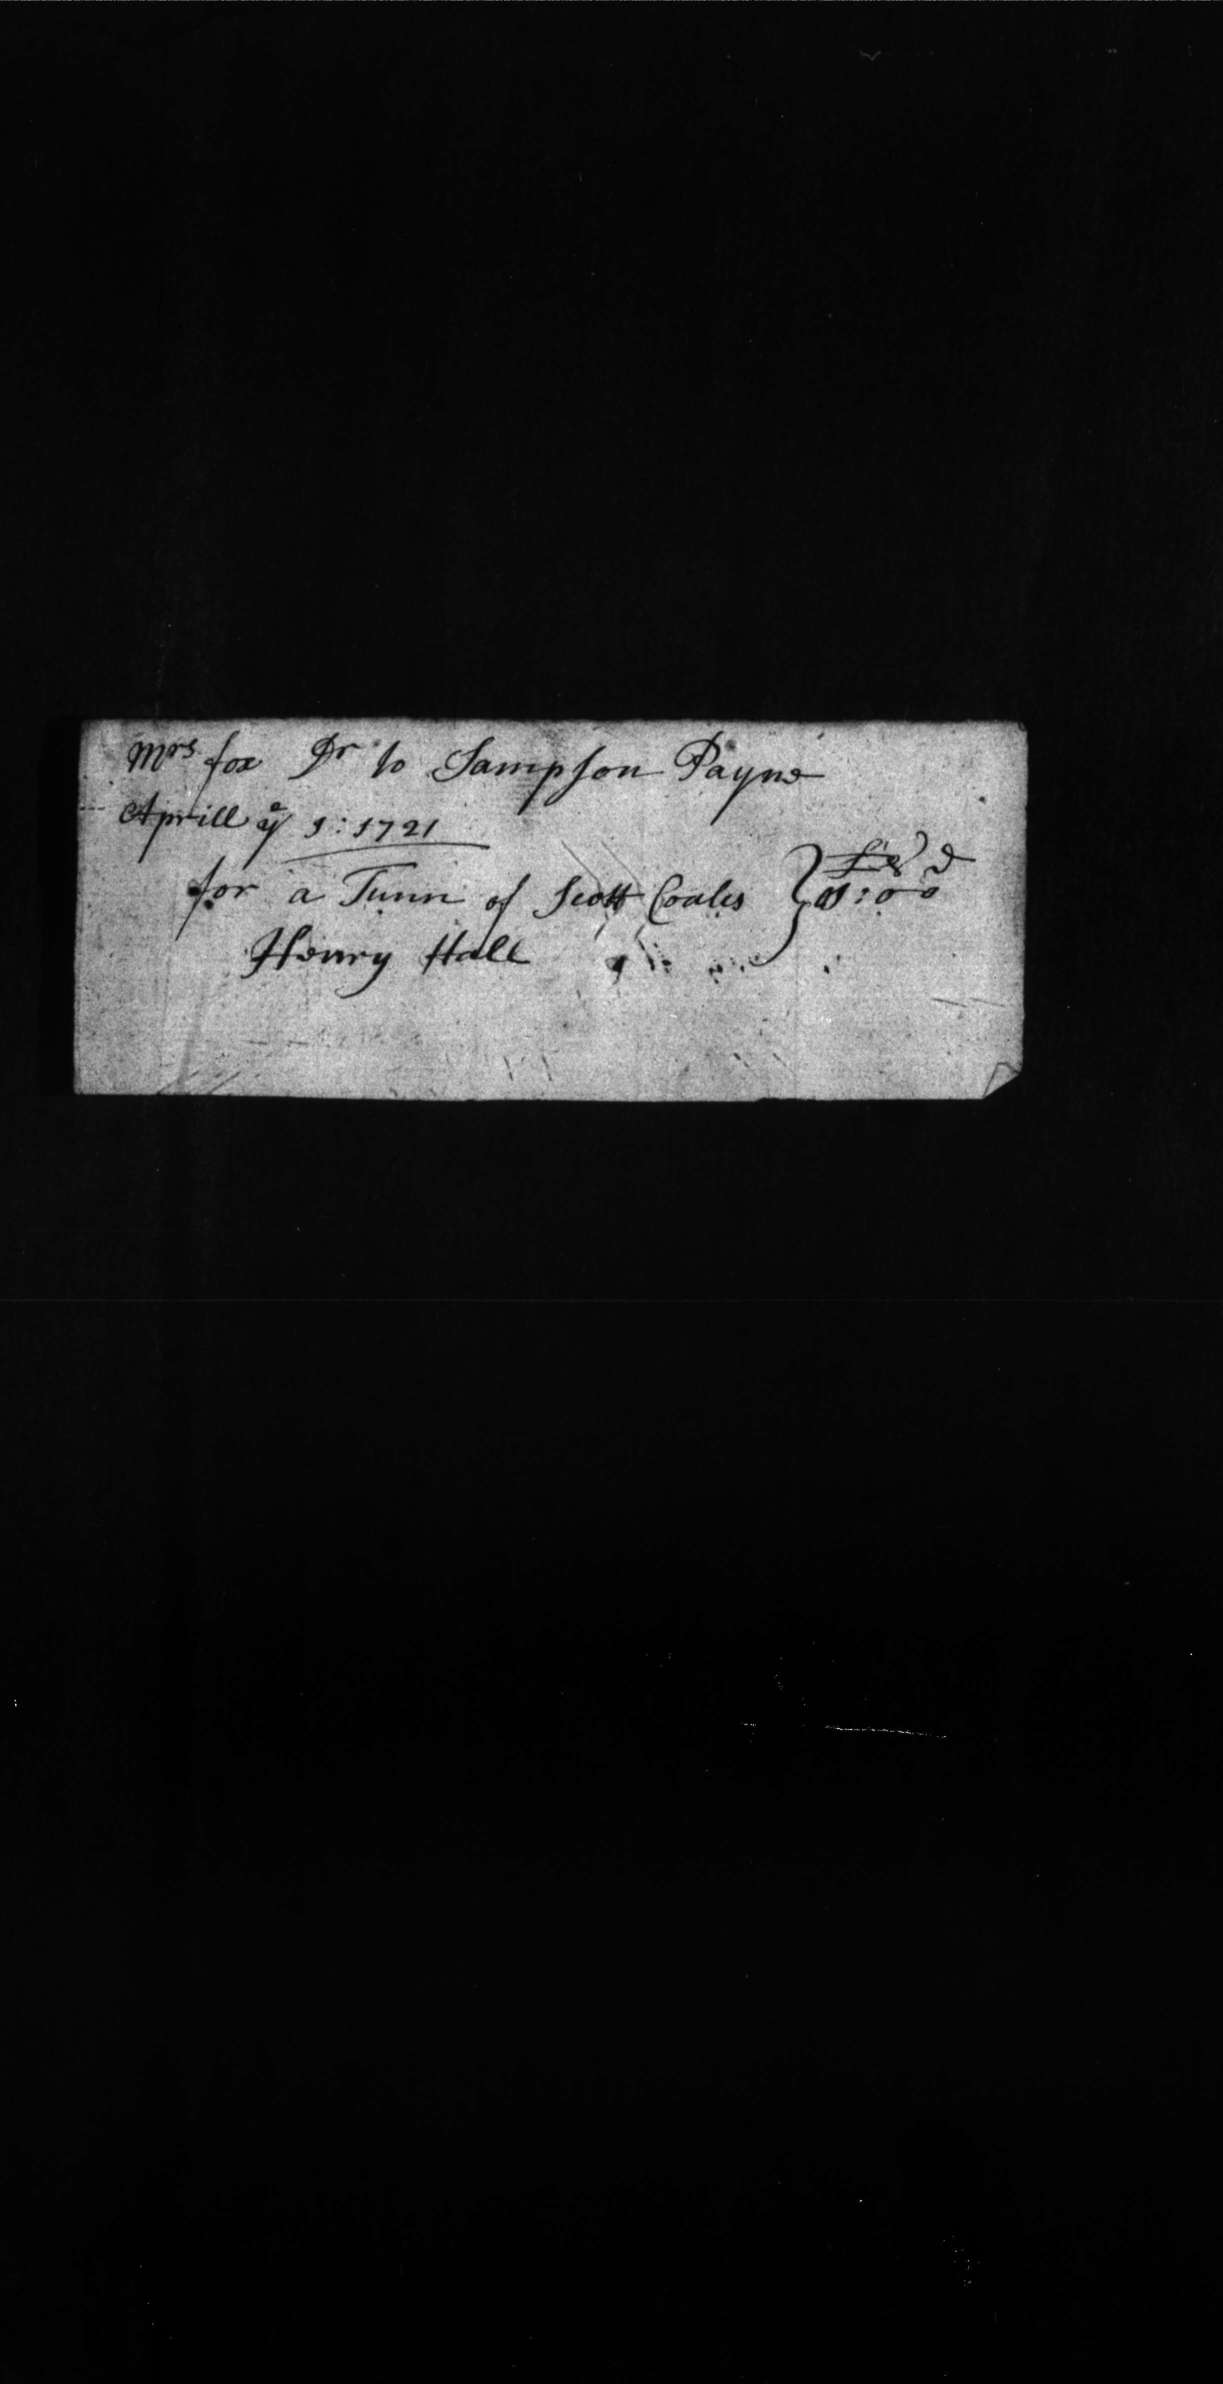 Mrs fox Dr to Sampson Payne
Aprill ye 1: 1721
£ s d
for a Tunn of Scott Coales } 01:00
Henry Hall